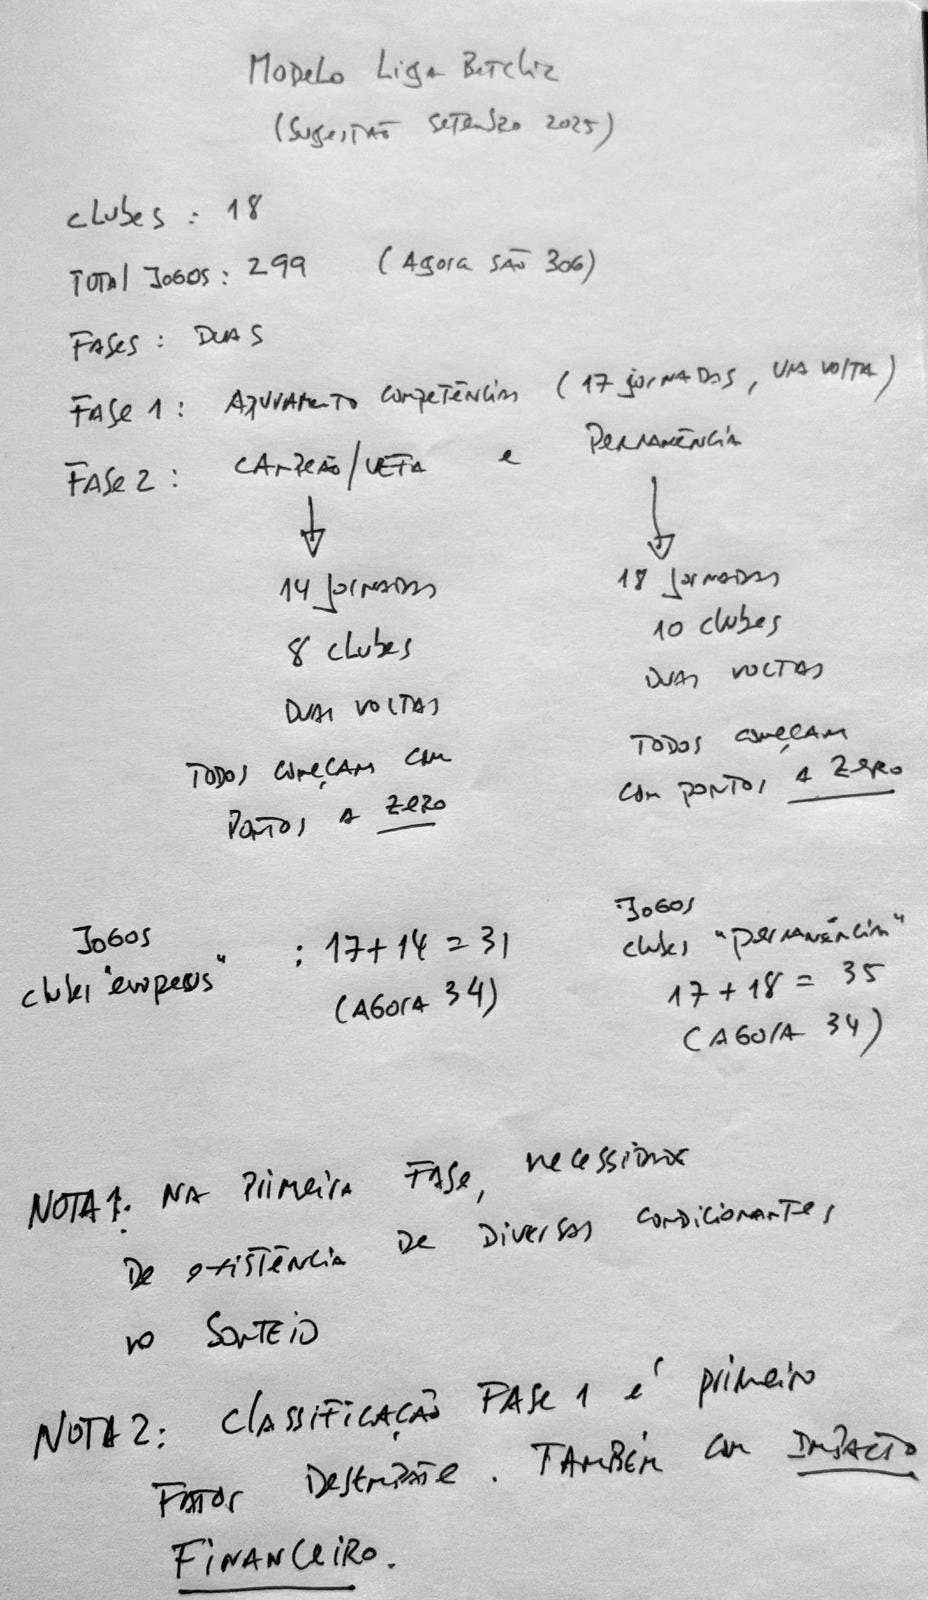 Modelo Liga Betclic
(Sugestão Setembro 2025)
Clubes : 18
Total Jogos : 299 (Agora são 306)
Fases : Duas
Fase 1 : Apuramento competências (17 jornadas, uma volta)
Fase 2 : Campeão/UEFA e Permanência
14 jornadas
8 clubes
Duas voltas
Todos começam com
Pontos a zero
18 jornadas
10 clubes
Duas voltas
Todos começam
com pontos a zero
Jogos
clubes "europeus" : 17+14 = 31
(Agora 34)
Jogos
clubes "permanência"
17 + 18 = 35
(Agora 34)
Nota 1: Na primeira fase, necessidade
de existência de diversas condicionantes
no sorteio
Nota 2: Classificação Fase 1 é primeiro
fator desempate. Também com impacto
financeiro.